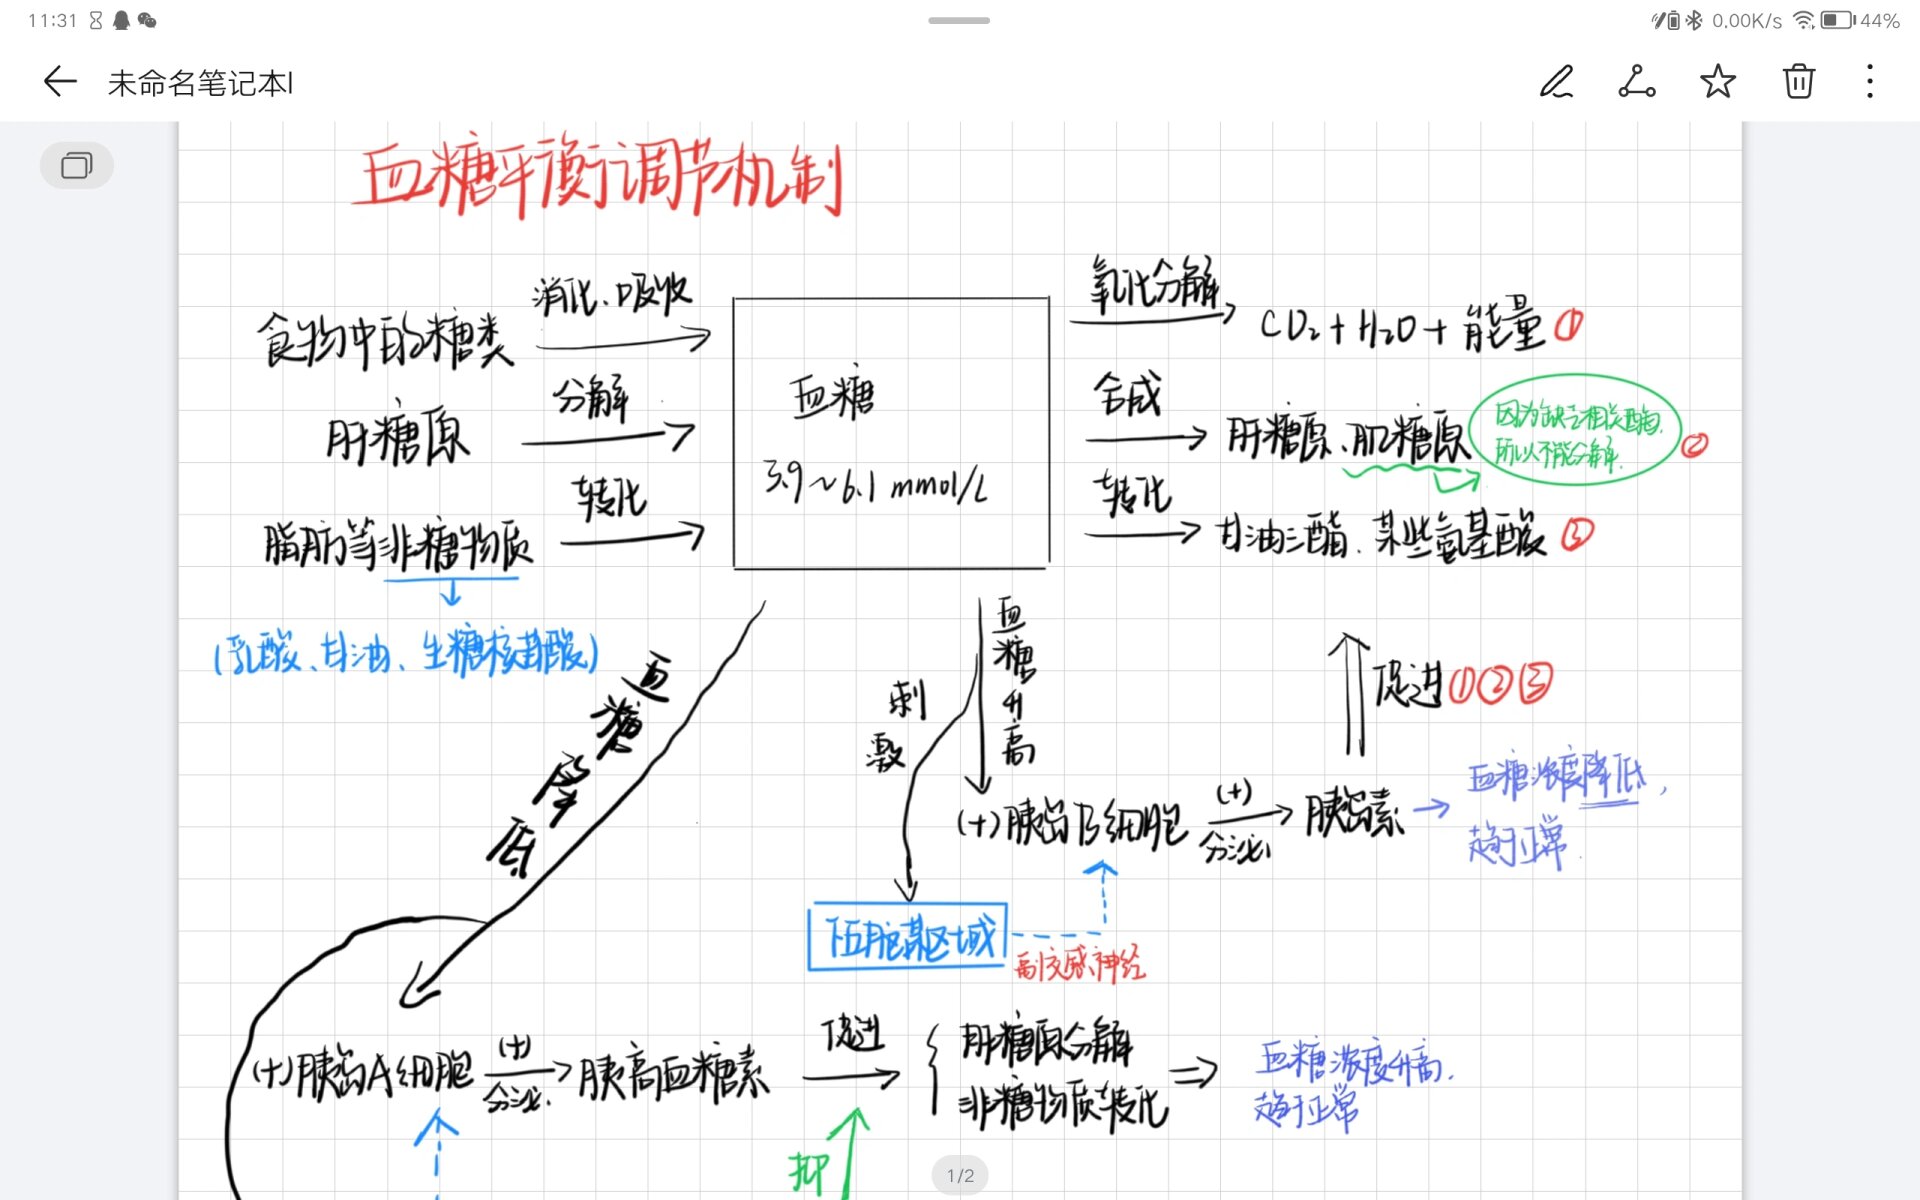 11:31
0.00K/s
44%
未命名笔记本
血糖平衡调节机制
食物中的糖类
消化、吸收
氧化分解
CO₂+H₂O+能量①
肝糖原
分解
血糖
3.9~6.1 mmol/L
合成
肝糖原、肌糖原
因为缺乏相关酶,
所以不能分解.
②
脂肪等非糖物质
转化
转化
甘油三酯、某些氨基酸③
(乳酸、甘油、生糖核苷酸)
血糖降低
刺激
血糖升高
促进①②③
(+)胰岛B细胞
(+)
分泌
胰岛素
血糖浓度降低,
趋于正常.
下丘脑某区域
副交感神经
(+)胰岛A细胞
(+)
分泌.
胰高血糖素
促进
肝糖原分解
非糖物质转化
血糖浓度升高.
趋于正常
抑
1/2